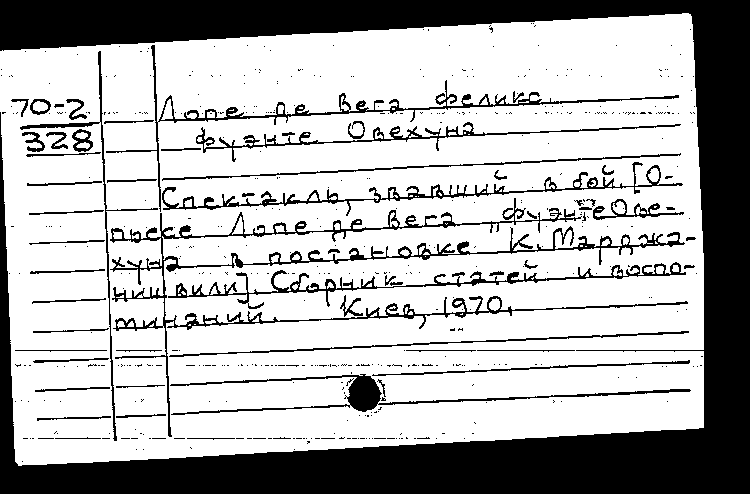 70-2
328
Лопе де Вега, Феликс.
Фуэнте Овехуна.
Спектакль, звавший в бой. [О-
пьесе Лопе де Вега „Фуэнте Ове-
хуна в постановке К. Марджа-
нишвили]. Сборник статей и воспо-
минаний. Киев, 1970.